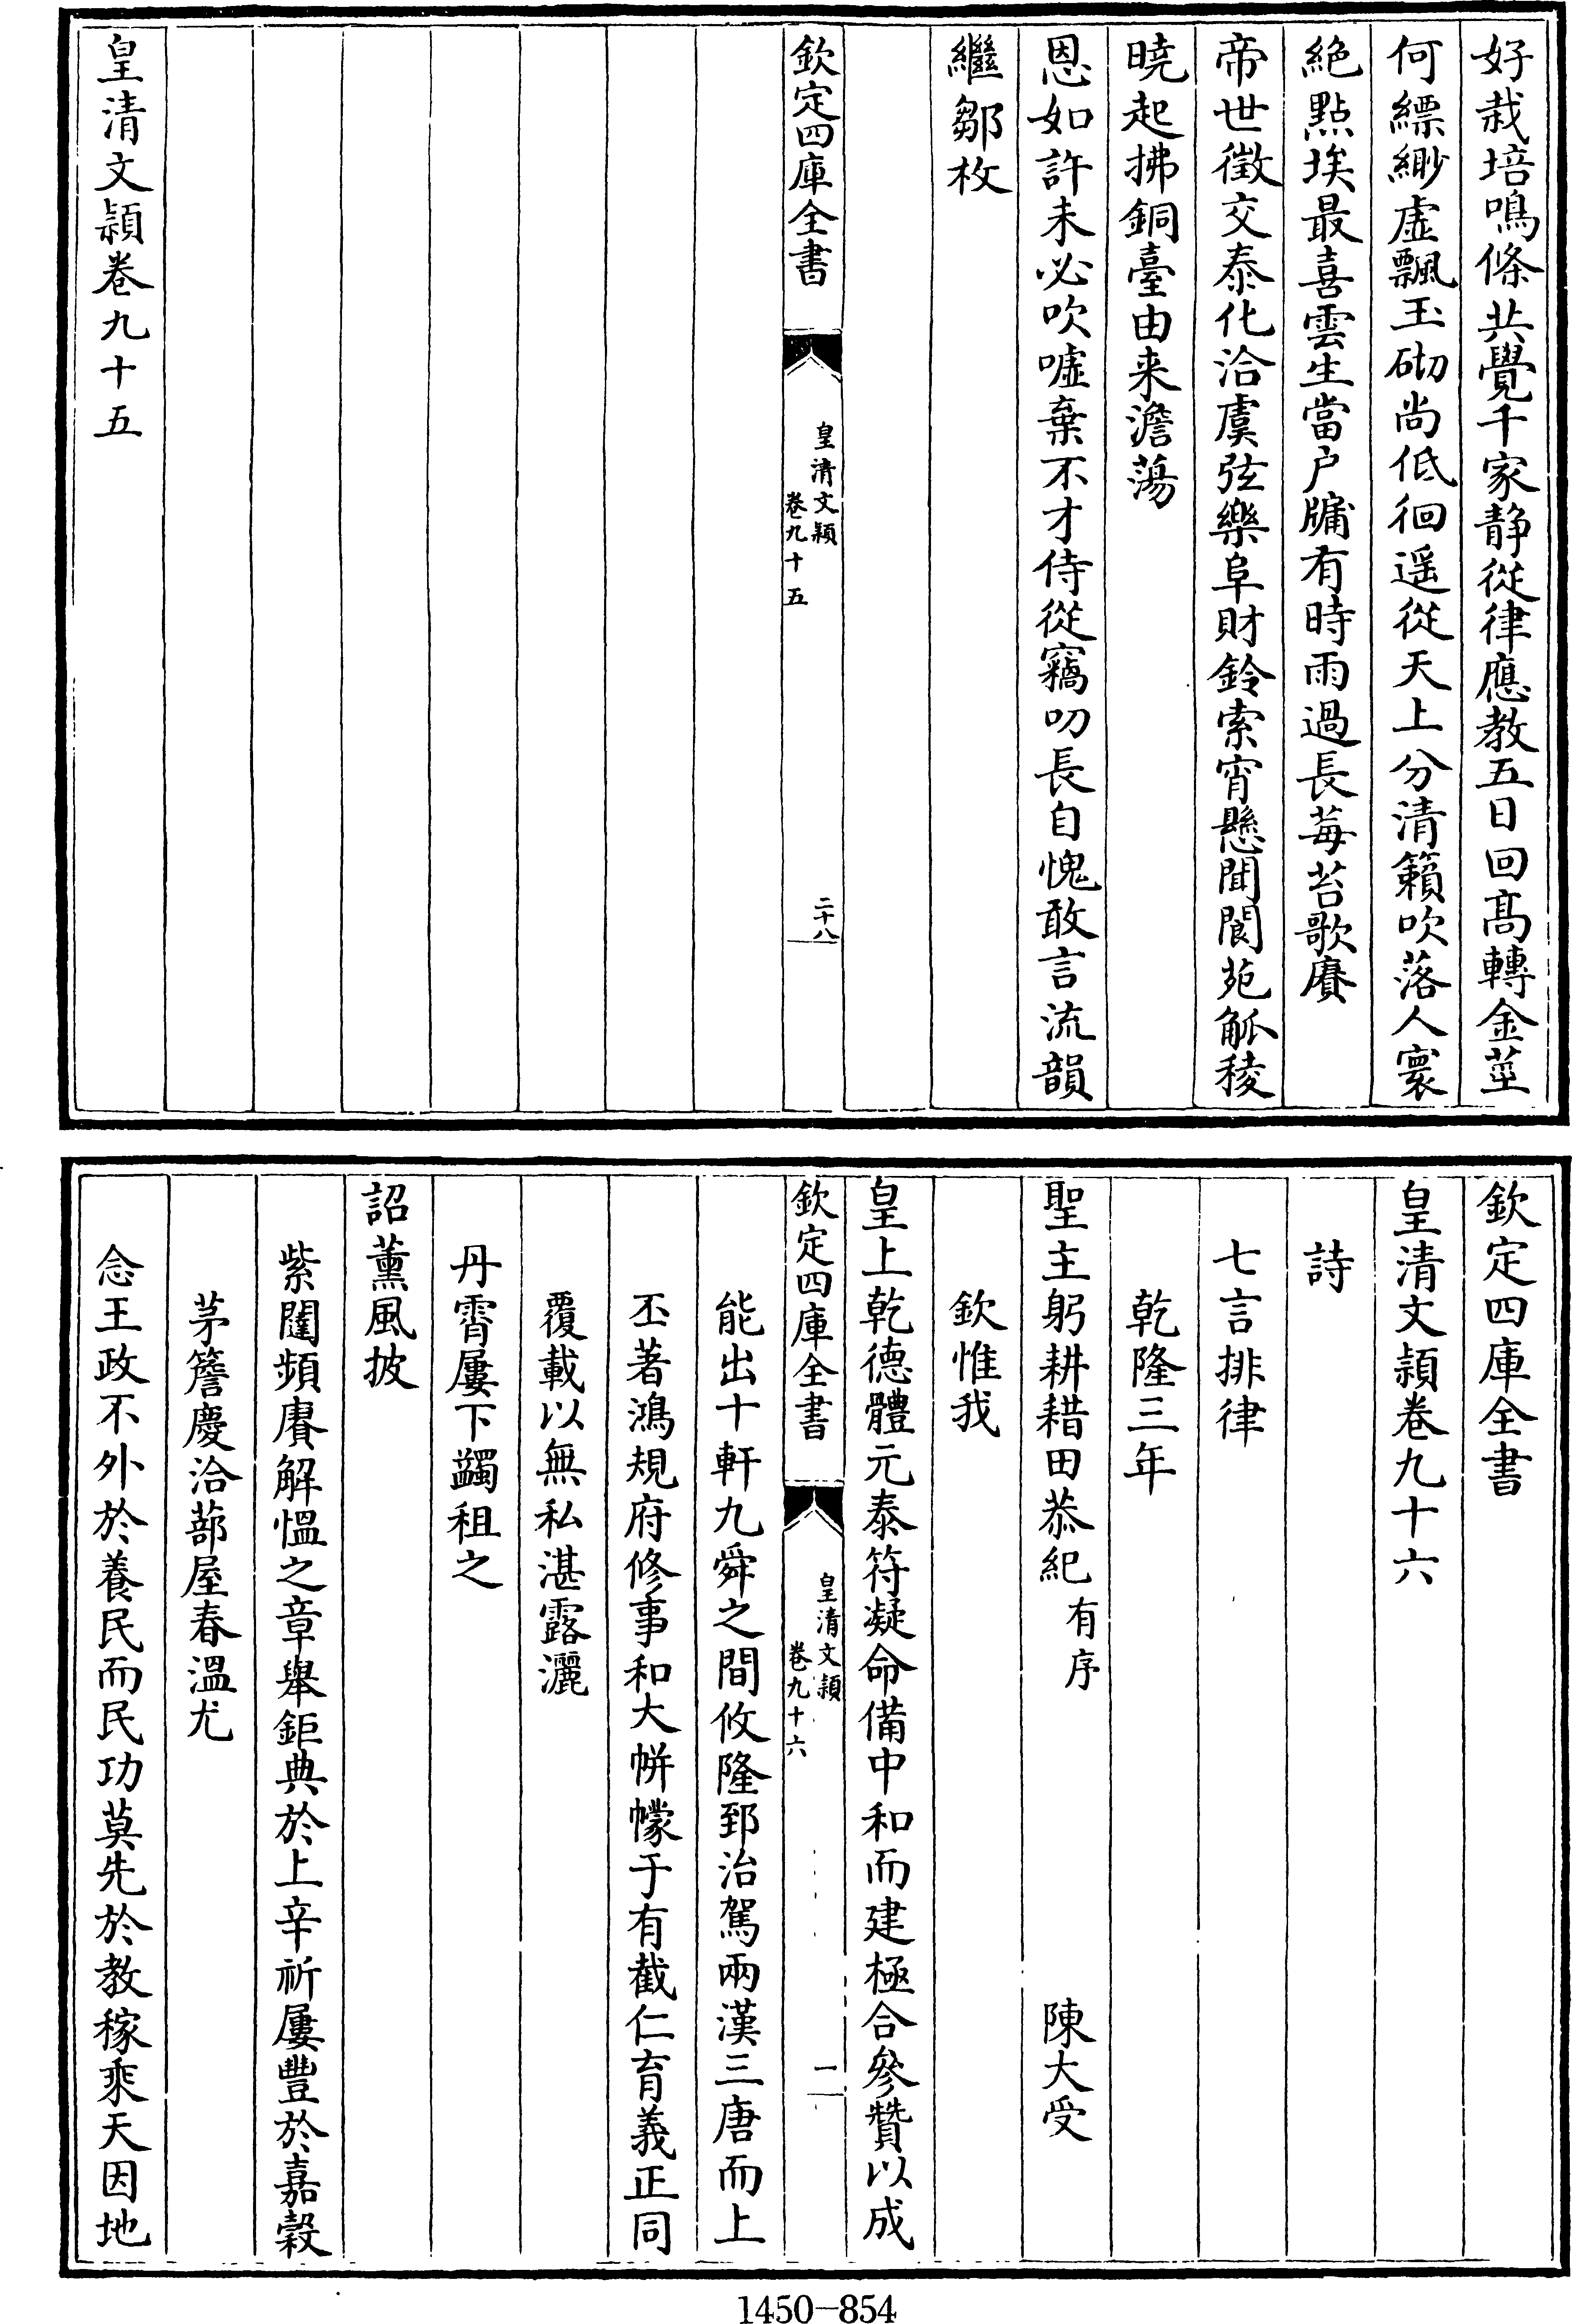 好栽培鳴條共覺千家静從律應教五日回髙轉金莖
何縹緲虚飄玉砌尚低徊遥從天上分清籟吹落人寰
絶點埃最喜雲生當户牖有時雨過長莓苔歌賡
帝世徵交泰化洽虞弦樂阜財鈴索宵懸聞閬苑觚稜
曉起拂銅臺由来澹蕩
恩如許未必吹噓棄不才侍從竊叨長自愧敢言流韻
繼鄒枚
欽定四庫全書
皇清文穎
卷九十五
二十八
皇清文穎卷九十五
欽定四庫全書
皇清文穎卷九十六
詩
七言排律
乾隆三年
聖主躬耕耤田恭紀有序 陳大受
欽惟我
皇上乾德體元泰符凝命備中和而建極合參贊以成
欽定四庫全書
皇清文穎
卷九十六
一
能出十軒九舜之間攸隆郅治駕兩漢三唐而上
丕著鴻規府修事和大帡幪于有截仁育義正同
覆載以無私湛露灑
丹霄屢下蠲租之
詔薰風披
紫闥頻賡解愠之章舉鉅典於上辛祈屢豐於嘉穀
茅簷慶洽蔀屋春溫尤
念王政不外於養民而民功莫先於教稼乘天因地
1450-854